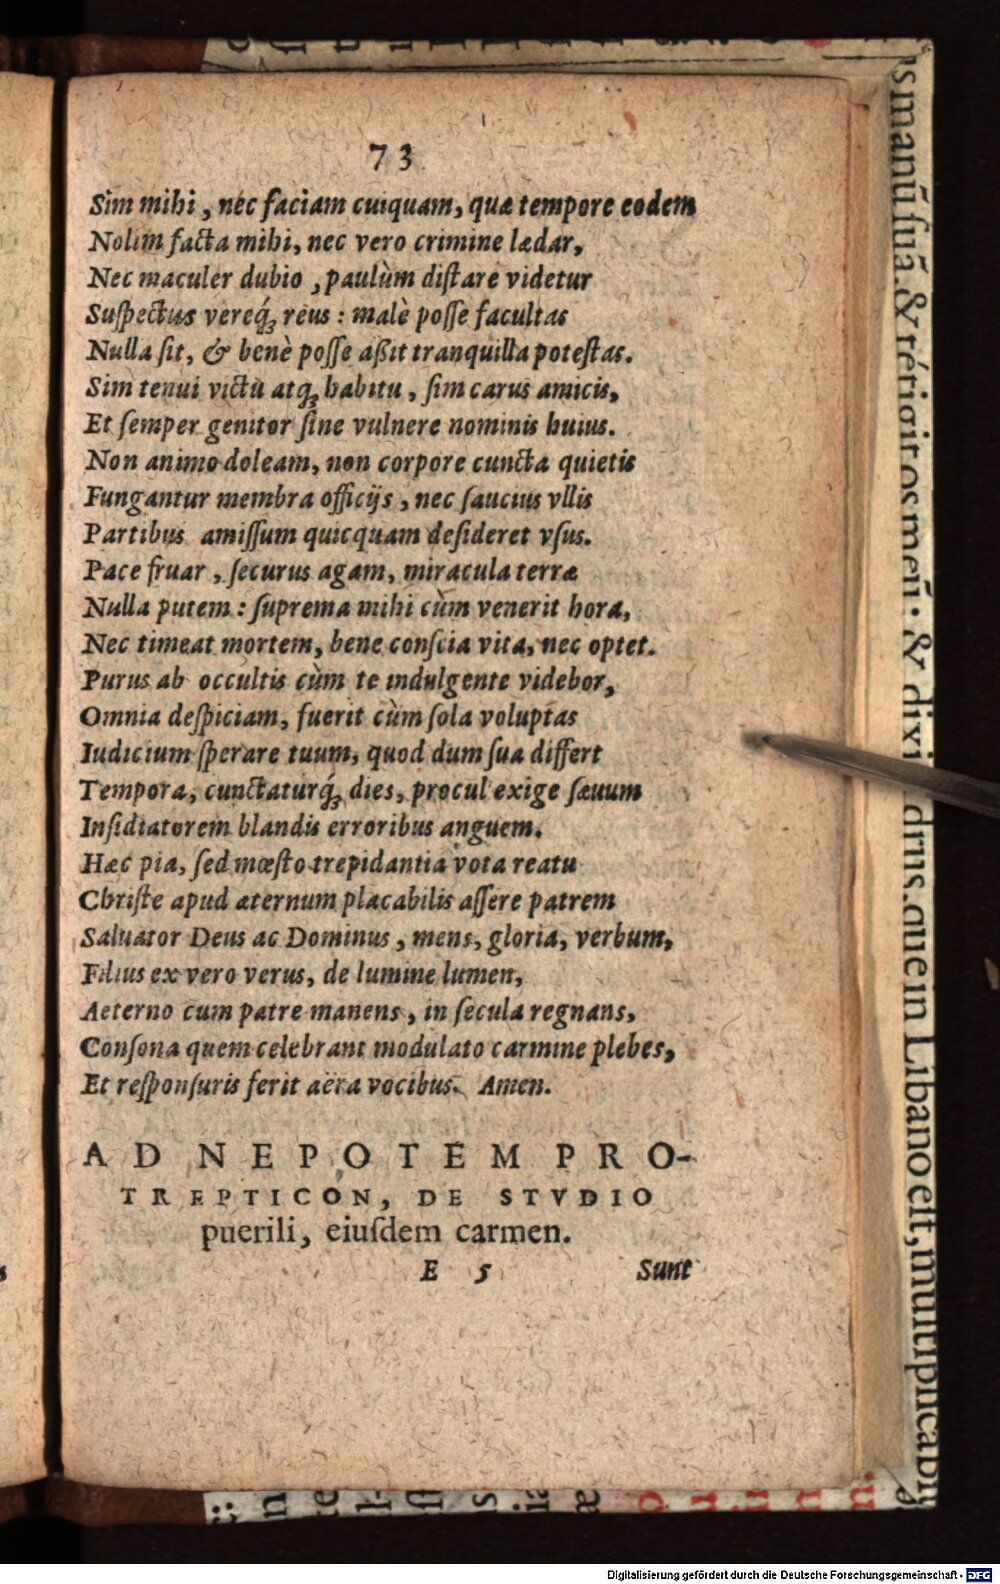 73
Sim mihi, nec faciam cuiquam, quæ tempore eodem
Nolim facta mihi, nec vero crimine lædar,
Nec maculer dubio, paulùm distare videtur
Suspectus vereq́ꝫ reus: malè posse facultas
Nulla sit, & benè posse aßit tranquilla potestas.
Sim tenui victu atqꝫ habitu, sim carus amicis,
Et semper genitor sine vulnere nominis huius.
Non animo doleam, non corpore cuncta quietis
Fungantur membra officijs, nec saucius vllis
Partibus amissum quicquam desideret vsus.
Pace fruar, securus agam, miracula terræ
Nulla putem: suprema mihi cùm venerit hora,
Nec timeat mortem, bene conscia vita, nec optet.
Purus ab occultis cùm te indulgente videbor,
Omnia despiciam, fuerit cùm sola voluptas
Iudicium sperare tuum, quod dum sua differt
Tempora, cunctaturq́ꝫ dies, procul exige sæuum
Insidiatorem blandis erroribus anguem.
Hæc pia, sed mœsto trepidantia vota reatu
Christe apud æternum placabilis assere patrem
Saluator Deus ac Dominus, mens, gloria, verbum,
Filius ex vero verus, de lumine lumen,
Aeterno cum patre manens, in secula regnans,
Consona quem celebrant modulato carmine plebes,
Et responsuris ferit aëra vocibus. Amen.
AD NEPOTEM PRO-
TREPTICON, DE STVDIO
puerili, eiusdem carmen.
E 5 Sunt
smanū suā. & tétigit os meū. & dixi
drus. que in Libano est, multiplicabi
Digitalisierung gefördert durch die Deutsche Forschungsgemeinschaft - DFG